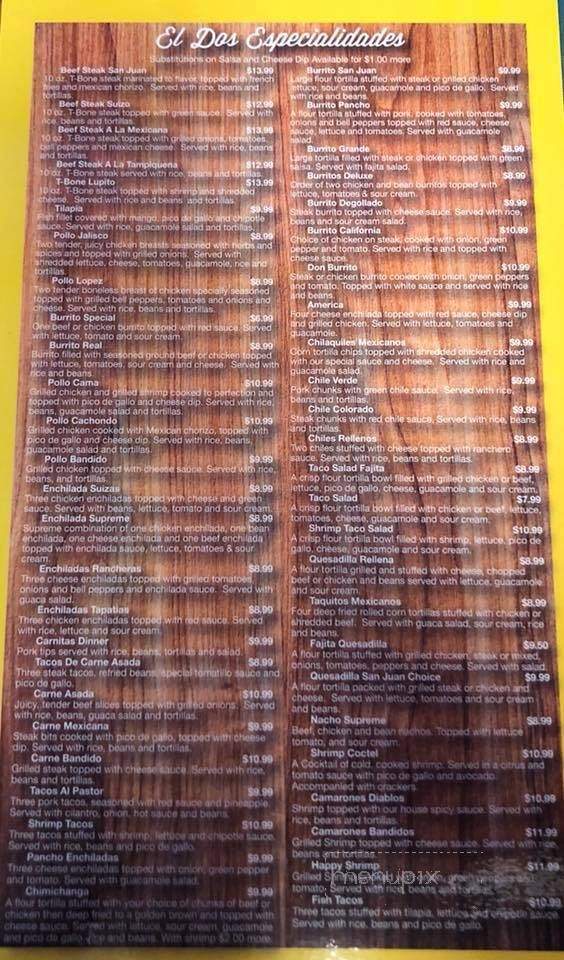 El Dos Especialidades
Substitutions on Salsa and Cheese Dip Available for $1.00 more
Beef Steak San Juan $13.99
10 oz. T-Bone steak marinated to flavor, topped with french
fries and mexican chorizo. Served with rice, beans and
tortillas.
Beef Steak Suizo $12.99
10 oz. T-Bone steak topped with green sauce. Served with
rice, beans and tortillas.
Beef Steak A La Mexicana $13.99
10 oz. T-Bone steak topped with grilled onions, tomatoes,
bell peppers and mexican cheese. Served with rice, beans
and tortillas.
Beef Steak A La Tampiquena $12.99
10 oz. T-Bone steak served with rice, beans and tortillas.
T-Bone Lupito $13.99
10 oz. T-Bone steak topped with shrimp and shredded
cheese. Served with rice and beans and tortillas.
Tilapia $9.99
Fish fillet covered with mango, pico de gallo and chipotle
sauce. Served with rice, guacamole salad and tortillas.
Pollo Jalisco $8.99
Two tender, juicy chicken breasts seasoned with herbs and
spices and topped with grilled onions. Served with
shredded lettuce, cheese, tomatoes, guacamole, rice and
tortillas.
Pollo Lopez $8.99
Two tender boneless breast of chicken specially seasoned
topped with grilled bell peppers, tomatoes and onions and
cheese. Served with rice, beans and tortillas.
Burrito Special $6.99
One beef or chicken burrito topped with red sauce. Served
with lettuce, tomato and sour cream.
Burrito Real $8.99
Burrito filled with seasoned ground beef or chicken topped
with lettuce, tomatoes, sour cream and cheese. Served with
rice and beans.
Pollo Cama $10.99
Grilled chicken and grilled shrimp cooked to perfection and
topped with pico de gallo and cheese dip. Served with rice,
beans, guacamole salad and tortillas.
Pollo Cachondo $10.99
Grilled chicken cooked with Mexican chorizo, topped with
pico de gallo and cheese dip. Served with rice, beans,
guacamole salad and tortillas.
Pollo Bandido $9.99
Grilled chicken topped with cheese sauce. Served with rice,
beans, and tortillas.
Enchilada Suizas $8.99
Three chicken enchiladas topped with cheese and green
sauce. Served with beans, lettuce, tomato and sour cream.
Enchilada Supreme $8.99
Supreme combination of one chicken enchilada, one bean
enchilada, one cheese enchilada and one beef enchilada
topped with enchilada sauce, lettuce, tomatoes & sour
cream.
Enchiladas Rancheras $8.99
Three cheese enchiladas topped with grilled tomatoes,
onions and bell peppers and enchilada sauce. Served with
guaca salad.
Enchiladas Tapatias $8.99
Three chicken enchiladas topped with red sauce. Served
with rice, lettuce and sour cream.
Carnitas Dinner $9.99
Pork tips served with rice, beans, tortillas and salad.
Tacos De Carne Asada $8.99
Three steak tacos, refried beans, special tomatillo sauce and
pico de gallo.
Carne Asada $10.99
Juicy, tender beef slices topped with grilled onions. Served
with rice, beans, guaca salad and tortillas.
Carne Mexicana $9.99
Steak bits cooked with pico de gallo, topped with cheese
dip. Served with rice, beans and tortillas.
Carne Bandido $10.99
Grilled steak topped with cheese sauce. Served with rice,
beans and tortillas.
Tacos Al Pastor $9.99
Three pork tacos, seasoned with red sauce and pineapple.
Served with cilantro, onion, hot sauce and beans.
Shrimp Tacos $10.99
Three tacos stuffed with shrimp, lettuce and chipotle sauce.
Served with rice, beans and pico de gallo.
Pancho Enchiladas $9.99
Three cheese enchiladas topped with onion, green pepper
and tomato. Served with guacamole salad.
Chimichanga $9.99
A flour tortilla stuffed with your choice of chunks of beef or
chicken then deep fried to a golden brown and topped with
cheese sauce. Served with lettuce, sour cream, guacamole
and pico de gallo, rice and beans. With shrimp $2.00 more.
Burrito San Juan $9.99
Large flour tortilla stuffed with steak or grilled chicken
lettuce, sour cream, guacamole and pico de gallo. Served
with rice and beans.
Burrito Pancho $9.99
A flour tortilla stuffed with pork, cooked with tomatoes,
onions and bell peppers topped with red sauce, cheese
sauce, lettuce and tomatoes. Served with guacamole
salad.
Burrito Grande $8.99
Large tortilla filled with steak or chicken topped with green
salsa. Served with fajita salad.
Burritos Deluxe $8.99
Order of two chicken and bean burritos topped with
lettuce, tomatoes & sour cream.
Burrito Degollado $9.99
Steak burrito topped with cheese sauce. Served with rice,
beans and sour cream salad.
Burrito California $10.99
Choice of chicken on steak, cooked with onion, green
pepper and tomato. Served with rice and topped with
cheese sauce.
Don Burrito $10.99
Steak or chicken burrito cooked with onion, green peppers
and tomato. Topped with white sauce and served with rice
and beans.
America $9.99
Four cheese enchilada topped with red sauce, cheese dip
and grilled chicken. Served with lettuce, tomatoes and
guacamole.
Chilaquiles Mexicanos $9.99
Corn tortilla chips topped with shredded chicken cooked
with our special sauce and cheese. Served with rice and
guacamole salad.
Chile Verde $9.99
Pork chunks with green chile sauce. Served with rice,
beans and tortillas.
Chile Colorado $9.99
Steak chunks with red chile sauce, Served with rice, beans
and tortillas.
Chiles Rellenos $8.99
Two chiles stuffed with cheese topped with ranchero
sauce. Served with rice, beans and tortillas.
Taco Salad Fajita $8.99
A crisp flour tortilla bowl filled with grilled chicken or beef,
lettuce, pico de gallo, cheese, guacamole and sour cream.
Taco Salad $7.99
A crisp flour tortilla bowl filled with chicken or beef, lettuce,
tomatoes, cheese, guacamole and sour cream.
Shrimp Taco Salad $10.99
A crisp flour tortilla bowl filled with shrimp, lettuce, pico de
gallo, cheese, guacamole and sour cream.
Quesadilla Rellena $8.99
A flour tortilla grilled and stuffed with cheese, chopped
beef or chicken and beans served with lettuce, guacamole
and sour cream.
Taquitos Mexicanos $8.99
Four deep fried rolled corn tortillas stuffed with chicken or
shredded beef. Served with guaca salad, sour cream, rice
and beans.
Fajita Quesadilla $9.50
A flour tortilla stuffed with grilled chicken, steak or mixed,
onions, tomatoes, peppers and cheese. Served with salad.
Quesadilla San Juan Choice $9.99
A flour tortilla packed with grilled steak or chicken and
cheese. Served with lettuce, tomatoes and sour cream
and beans.
Nacho Supreme $8.99
Beef, chicken and bean nachos. Topped with lettuce
tomato, and sour cream.
Shrimp Coctel $10.99
A Cocktail of cold, cooked shrimp. Served in a citrus and
tomato sauce with pico de gallo and avocado.
Accompanied with crackers.
Camarones Diablos $10.99
Shrimp topped with our house spicy sauce. Served with
rice, beans and tortillas.
Camarones Bandidos $11.99
Grilled Shrimp topped with cheese sauce. Served with rice,
beans and tortillas.
Happy Shrimp $11.99
Grilled green
tomato. Served with rice, beans and tortillas.
menupix
Fish Tacos $10.99
Three tacos stuffed with tilapia, lettuce and chipotle sauce.
Served with rice, beans and pico de gallo.